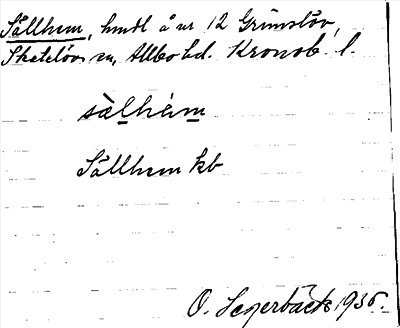 Sällhem, hmdl å nr 12 Grimslöv,
Skatelövs sn, Allbo hd. Kronob. l.
sàlhém
Sällhem kb
O. Segerbäck 1936.